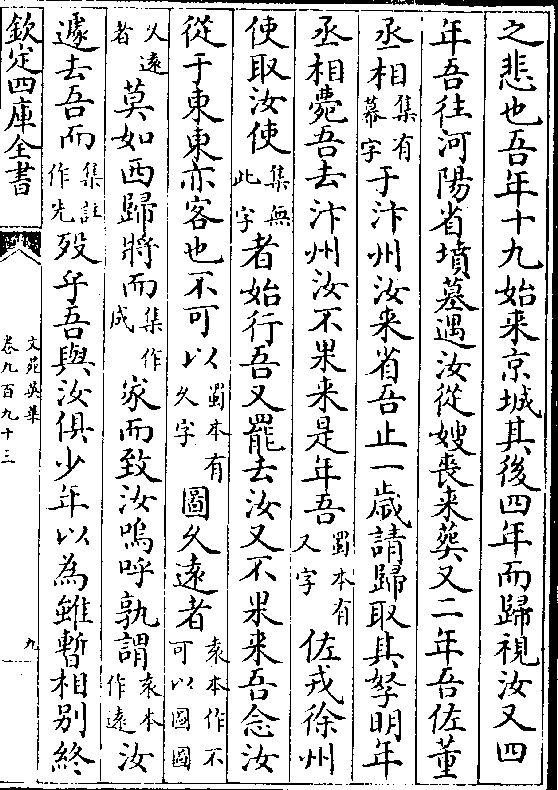 之悲也吾年十九始来京城其後四年而歸視汝又四
年吾往河陽省墳墓遇汝從嫂喪来葬又二年吾佐董
丞相集有幕字于汴州汝来省吾止一歲請歸取其孥明年
丞相薨吾去汴州汝不果来是年吾蜀本有又字佐戎徐州
使取汝使集無此字者始行吾又罷去汝又不果来吾念汝
從于東東亦客也不可以蜀本有久字圖久遠者袁本作不可以圖圖
久遠者莫如西歸將而集作成家而致汝嗚呼孰謂袁本作遠汝
遽去吾而集註作先歿乎吾與汝俱少年以為雖暫相别終
欽定四庫全書
文苑英華
卷九百九十三
九